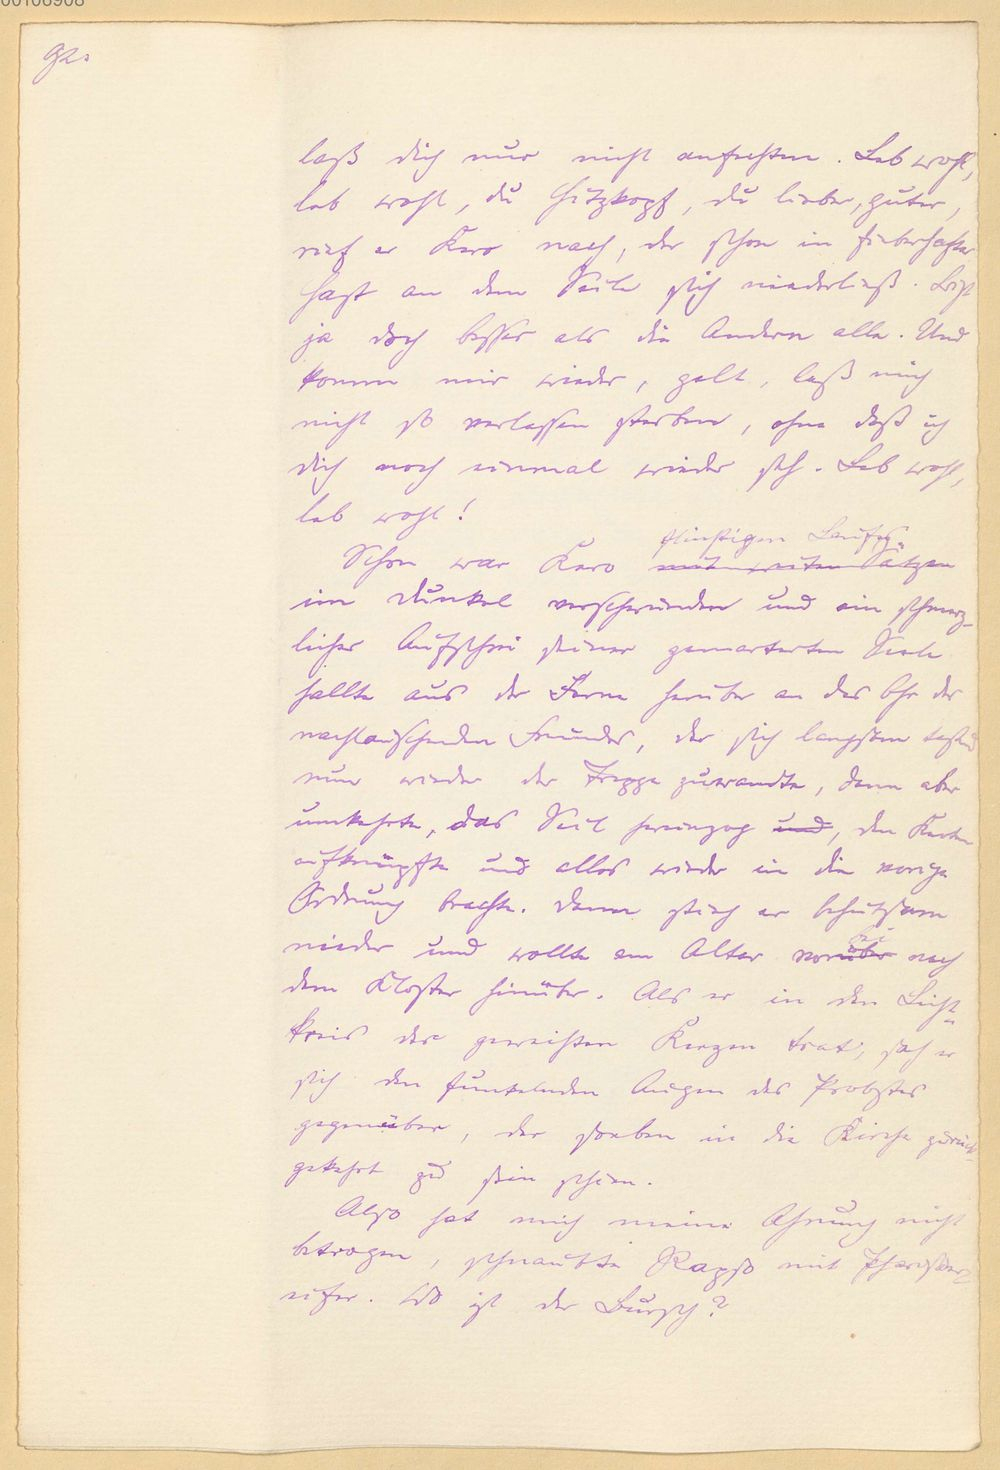 60106908
92.
laß dich nur nicht anfechten. Leb wohl,
leb wohl, du Hitzkopf, du lieber, guter,
rief er Karo nach, der schon in fieberhafter
Hast an dem Seile sich niederließ. Bist
ja doch besser als die Andern alle. Und
komm mir wieder, gelt, laß mich
nicht so verlassen sterben, ohne daß ich
dich noch einmal wieder seh. Leb wohl,
leb wohl!
flüchtigen Laufes
Schon war Karo mit weiten Sätzen
im Dunkel verschwunden und ein schmerz-
licher Aufschrei seiner gemarterten Seele
hallte aus der Ferne herüber an das Ohr des
nachlauschenden Freundes, der sich langsam tastend
nun wieder der Treppe zuwandte, dann aber
umkehrte, das Seil hereinzog und, den Knoten
aufknüpfte und alles wieder in die vorige
Ordnung brachte. Dann stieg er behutsam
nieder und wollte am Altar vorüber nach
dem Kloster hinüber. Als er in den Licht-
kreis der geweihten Kerzen trat, sah er
sich den funkelnden Augen des Probstes
gegenüber, der soeben in die Kirche zurück-
gekehrt zu sein schien.
Also hat mich meine Ahnung nicht
betrogen, schnaubte Rapso mit Pharisäer-
eifer. Wo ist der Bursch?